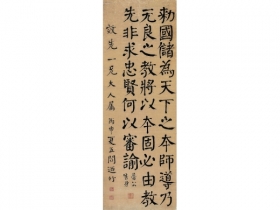 勅國儲為天下之本師導乃
元良之教將以本固必由教
先非求忠賢何以審諭
先一兄大人屬 丙申夏五